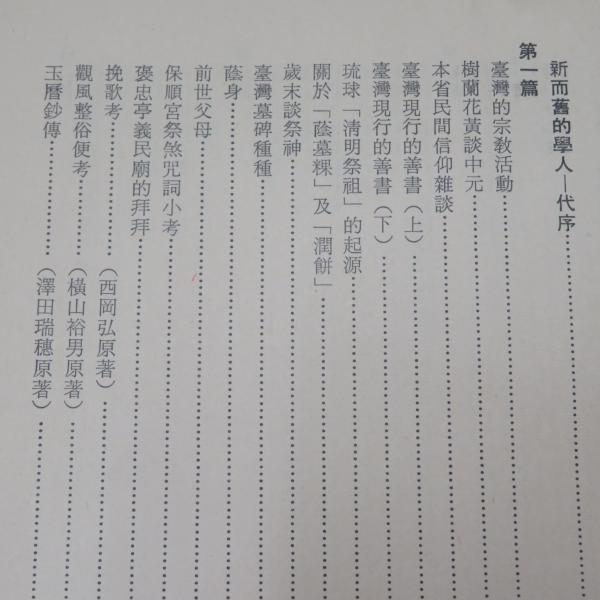 新而舊的學人—代序
第一篇
臺灣的宗教活動
樹蘭花黃談中元
本省民間信仰雜談
臺灣現行的善書（上）
臺灣現行的善書（下）
琉球「清明祭祖」的起源
關於「蔭墓粿」及「潤餅」
歲末談祭神
臺灣墓碑種種
蔭身
前世父母
保順宮祭煞咒詞小考
褒忠亭義民廟的拜拜
挽歌考（西岡弘原著）
觀風整俗便考（橫山裕男原著）
玉曆鈔傳（澤田瑞穗原著）